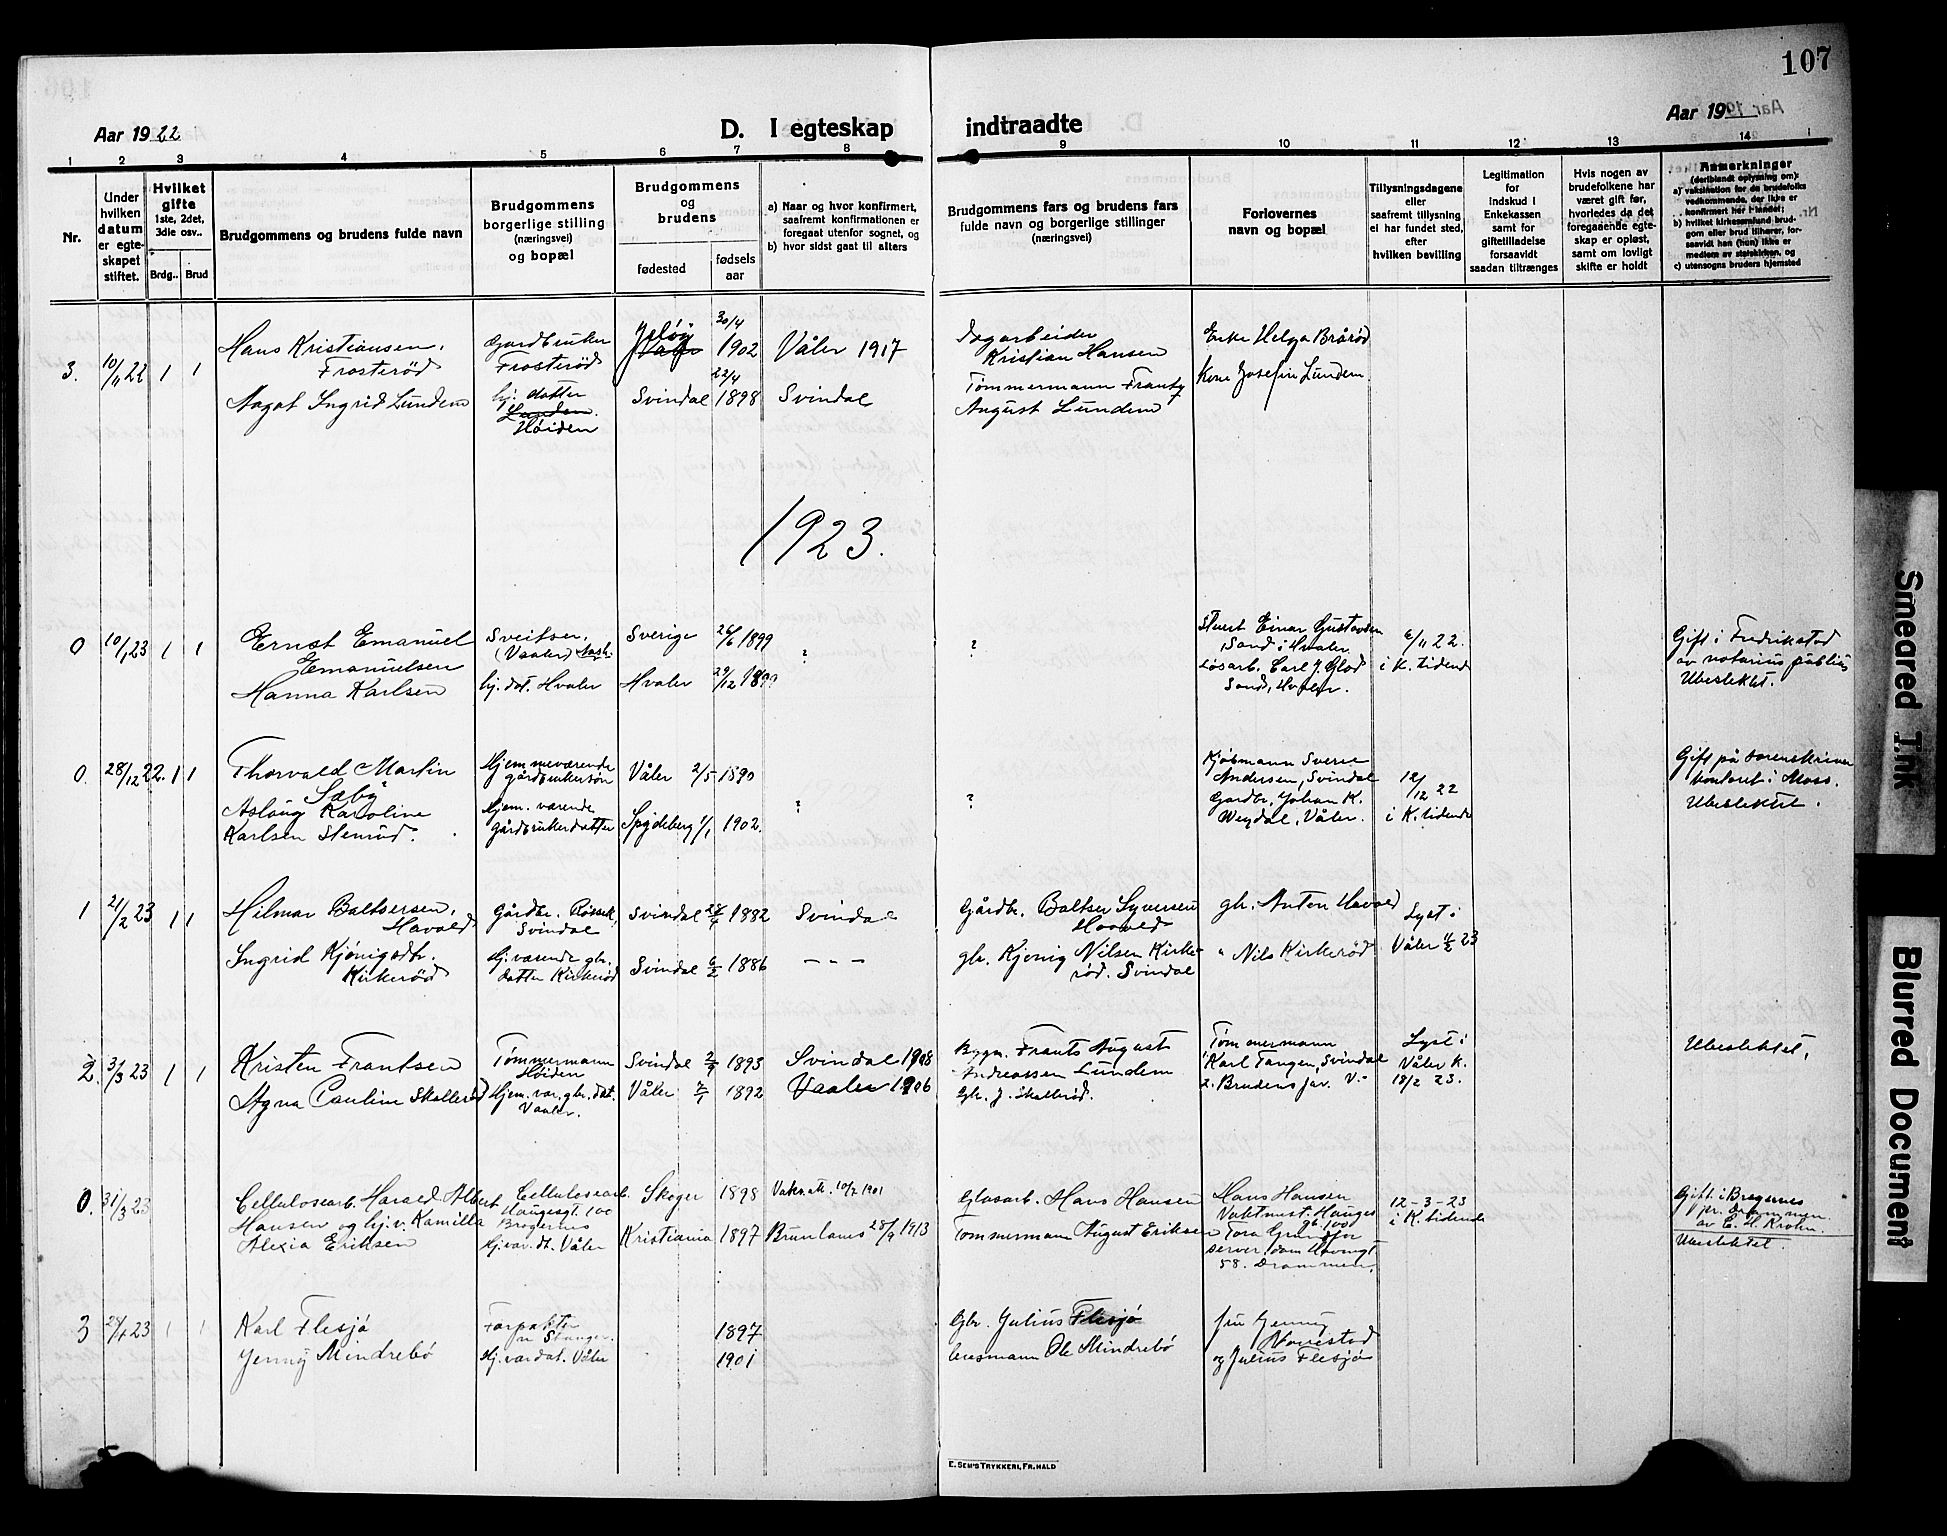 107
Aar 1922
D. I egteskap
indtraadte
Aar 19
1 2 3 4 5 6 7 8 9 10 11 12 13 14
Nr.
Under
hvilken
datum
er egte-
skapet
stiftet.
Hvilket
gifte
1ste, 2det,
3die osv..
Brdg.. Brud
Brudgommens og brudens fulde navn
Brudgommens
borgerlige stilling
(næringsvei)
og bopæl
Brudgommens
og
brudens
fødested
fødsels
aar
a) Naar og hvor konfirmert,
saafremt konfirmationen er
foregaat utenfor sognet, og
b) hvor sidst gaat til alters
Brudgommens fars og brudens fars
fulde navn og borgerlige stillinger
(næringsvei)
Forlovernes
navn og bopæl
Tillysningsdagene
eller
saafremt tillysning
ei har fundet sted,
efter
hvilken bevilling
Legitimation
for
indskud i
Enkekassen
samt for
giftetilladelse
forsaavidt
saadan tiltrænges
Hvis nogen av
brudefolkene har
været gift før,
hvorledes da det
foregaaende egte-
skap er opløst,
samt om lovligt
skifte er holdt
Anmerkninger
(deriblandt oplysning om):
a) vaksination for de brudefolks
vedkommende, der ikke er
konfirmert her i landet;
b) hvilket kirkesamfund brud-
gom eller brud tilhører, for-
saavidt han (hun) ikke er
medlem av statskirken, og
c) utensogns bruders hjemsted
3. 10/11 22 1 1
Hans Kristiansen,
Frosterød
Aagot Ingrid Lundem
Gardbruker
Frosterød
hj. datter
Lundem.
Høiden
Jeløy
Vaaler
30/4
1902
Våler 1917
Svindal
22/4
1898
Svindal
Dagarbeider
Kristian Hansen
Tømmermann Frantz
August Lundem
Enke Helga Brårød
Kone Josefine Lundem
1923.
0 10/1 23 1 1
Ernst Emanuel
Emanuelsen
Hanna Karlsen
Sveitser,
(Vaaler)
hj. dat. Hvaler
Sverige 26/6 1899
Hvaler 29/12 1899
?
?
Stuert Einar Gustavsen
Sand i Hvaler
Løsarb. Carl J. Glod
Sand, Hvaler.
6/11 22.
i K. tidende
Gift i Fredrikstad
av notarius publicus
Ubeslektet.
0. 28/12 22. 1 1
Thorvald Martin
Sæby
Aslaug Karoline
Karlsen Stenrød.
Hjemmeværende
gårdbrukersøn
Hjem. værende
gårdbrukerdatter
Våler 2/5 1890
Spydeberg 1/1 1902.
?
?
Kjøbmann Sverre
Andersen, Svindal
Gardbr. Johan K.
Weydal, Våler.
12/12 22
i K. tidende
Gift på sorenskriver
kontoret i Moss.
Ubeslektet.
1 21/2 23 1 1
Hilmar Baltsersen,
Havold
Ingrid Kjønigsdtr.
Kirkerød
Gårdbr.
Svindal
Hj. værende gbr.
datter Kirkerød
Svindal 1882
Svindal 6/2 1886
Svindal
- - -
Gårdbr. Baltser Syversen
Haavold
gbr. Kjønig Nilsen Kirke-
rød. Svindal
gbr. Anton Havold
" Nils Kirkerød
Lyst i
Våler 11/2 23
2. 3/3 23 1 1
Kristen Frantsen
Agna Pauline Skallerød
Tømmermann
Høiden
Hjem. vær. gbr. dat.
Vaaler.
Svindal 1893
Våler 1892
Svindal 1908
Vaaler 1906
Bygm. Frants August
Andreassen Lundem
Gbr. J. Skallerød.
Tømmermann
Karl Tangen, Svindal
2. Brudens far. V.-
Lyst i
Våler K.
18/2 23.
Ubeslektet,
0. 31/3 23
Cellulosearb. Harald Albert
Hansen og hj. v. Kamilla
Alexia Eriksen
Cellulosearb.
Haugesgt. 100
Bragernes
Hj. vær. dt. Våler
Skoger 1898
Kristiania 1897
Vaks. att. 10/7 1901
Brunlanes 28/9 1913
Glasarb. Hans Hansen
Tømmermann August Eriksen
Hans Hansen
Vaktmest. Hauges
gt. 100
Tora
server. dam
58. Drammen,
12-3-23
i K. tidende
Gift. i Bragernes
pr. Drammen.
av C. H. Krohn.
Ubeslektet.
3 23 1 1
Karl Flesjø
Jenny Mindrebø
Forpakter
Hj. vær dat. Våler
1897
1901
Gbr. Julius Flesjø
Ole Mindrebø
fru Jenny
Norestad
og Julius Flesjø
E. SEM'S TRYKKERI, FR.HALD
Smeared Ink
Blurred Document